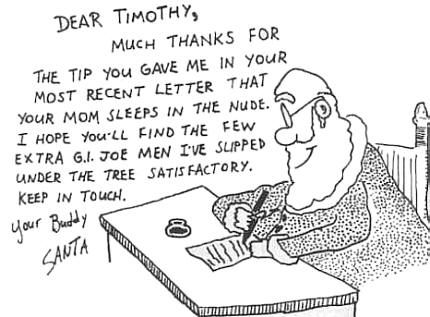 DEAR TIMOTHY,
MUCH THANKS FOR
THE TIP YOU GAVE ME IN YOUR
MOST RECENT LETTER THAT
YOUR MOM SLEEPS IN THE NUDE.
I HOPE YOU'LL FIND THE FEW
EXTRA G.I. JOE MEN I'VE SLIPPED
UNDER THE TREE SATISFACTORY.
KEEP IN TOUCH.
your Buddy
SANTA